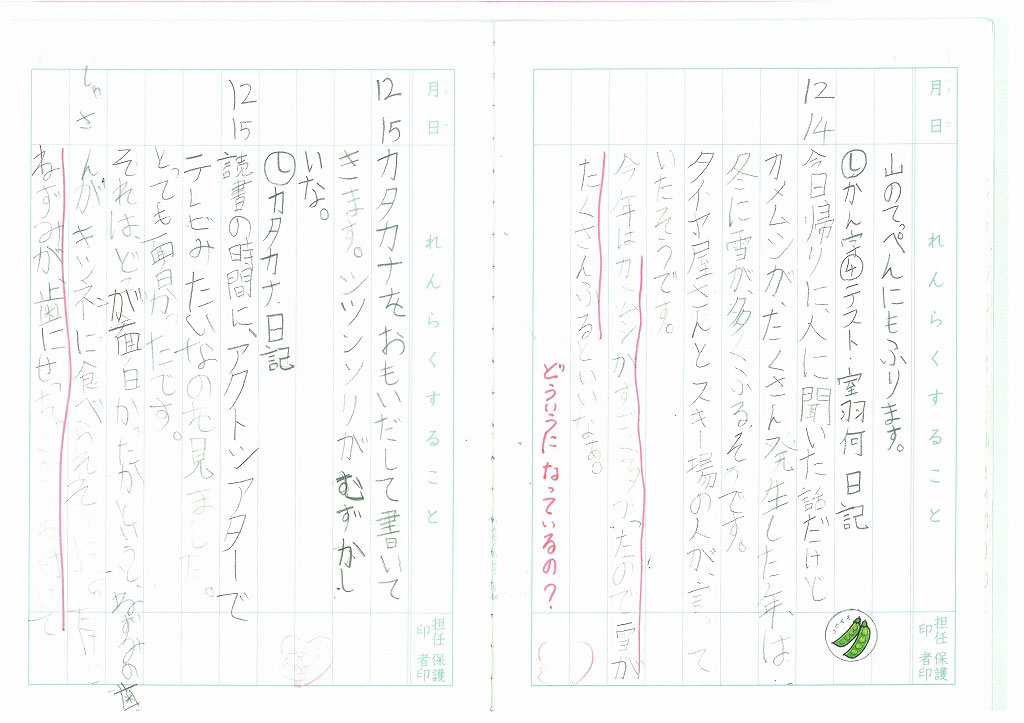 月 日
れんらくすること
担任印 保護者印
山のてっぺんにもふります。
12/14
㋛かん字㊃テスト・室羽何 日記
今日帰りに、人に聞いた話だけど
カメムシが、たくさん発生した年、は
冬に雪が、多くふる、そうです。
タイヤ屋さんとスキー場の人が、言って
いたそうです。
今年はカメムシがすごく多かったので雪が
たくさんふるといいなぁ。
どういうに なっているの？
月 日
れんらくすること
担任印 保護者印
12/15
カタカナをおもいだして書いて
きます。シツンソリがむずかし
いな。
㋛カタカナ、日記
12/15
読書の時間に、アクトシアターで
テレビみたいなのを見ました。
とっても面白かったです。
それは、どこが面白かったかというと、ねずみの歯
しゃさ
んが、キツネに食べられそ
ねずみが、歯にせっちゃく